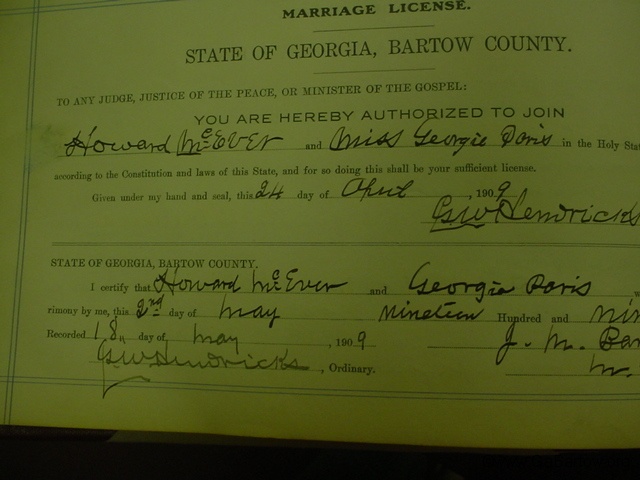 MARRIAGE LICENSE.
STATE OF GEORGIA, BARTOW COUNTY.
TO ANY JUDGE, JUSTICE OF THE PEACE, OR MINISTER OF THE GOSPEL:
YOU ARE HEREBY AUTHORIZED TO JOIN
Howard McEver and Miss Georgie Davis in the Holy Stat
according to the Constitution and laws of this State, and for so doing this shall be your sufficient license.
Given under my hand and seal, this 24 day of April, 1909
G.W. Hendricks
STATE OF GEORGIA, BARTOW COUNTY.
I certify that Howard McEver and Georgia Davis w
rimony by me, this 2nd day of May Nineteen Hundred and nin
Recorded 18, day of May, 1909 J. M. Bar
G.W. Hendricks, Ordinary. M.